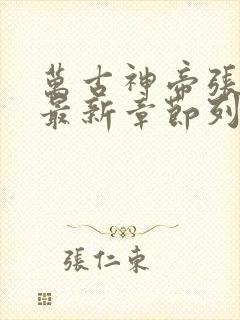 萬古神帝張
最新章節列
張仁東